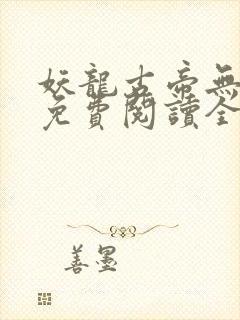 妖龍古帝無
免費閱讀全
善墨